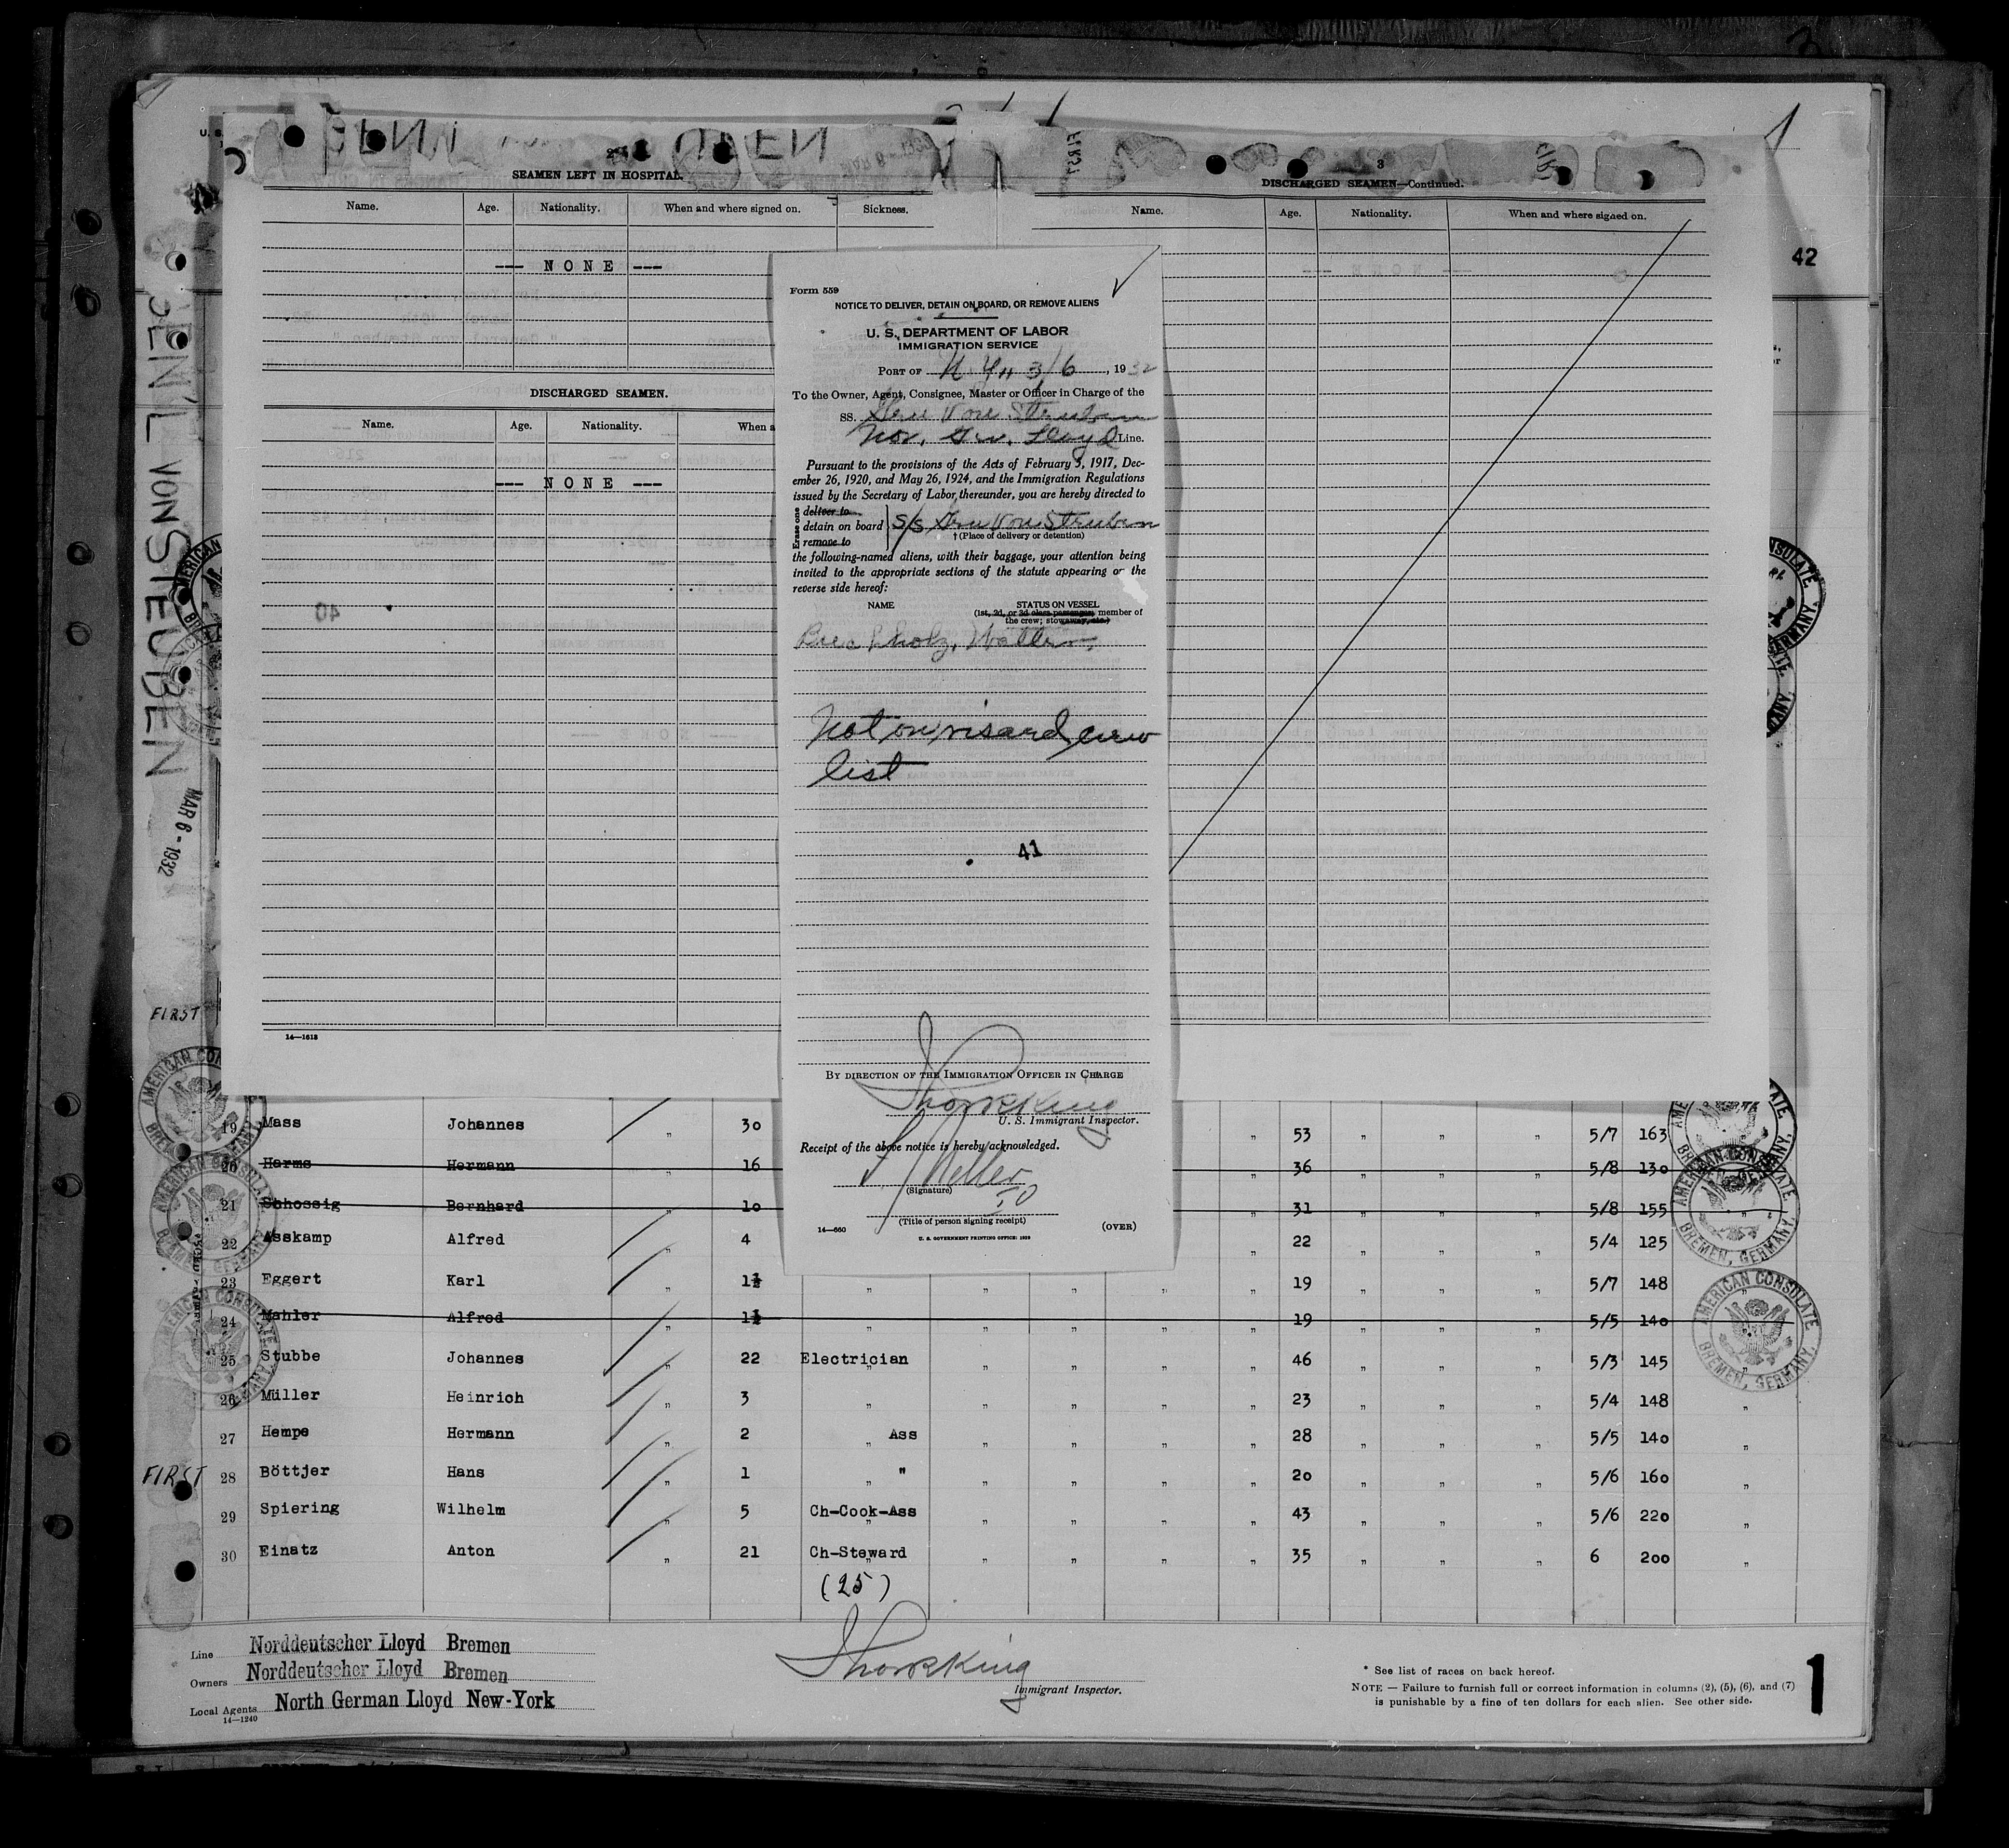 SEAMEN LEFT IN HOSPITAL.
Name. Age. Nationality. When and where signed on. Sickness.
--- NONE ---
DISCHARGED SEAMEN.
Name. Age. Nationality. When a
--- NONE ---
14—1613
3
DISCHARGED SEAMEN—Continued.
Name. Age. Nationality. When and where signed on.
42
GEN'L VON STEUBEN
MAR 6 - 1932
FIRST
FIRST
Form 559
NOTICE TO DELIVER, DETAIN ON BOARD, OR REMOVE ALIENS
U. S. DEPARTMENT OF LABOR
IMMIGRATION SERVICE
PORT OF N.Y., 3/6, 1932
To the Owner, Agent, Consignee, Master or Officer in Charge of the
SS. Gen Von Steuben
Nor. Ger. Lloyd Line.
Pursuant to the provisions of the Acts of February 5, 1917, Dec-
ember 26, 1920, and May 26, 1924, and the Immigration Regulations
issued by the Secretary of Labor thereunder, you are hereby directed to
Erase one
deliver to
detain on board S/S Gen Von Steuben
remove to † (Place of delivery or detention)
the following-named aliens, with their baggage, your attention being
invited to the appropriate sections of the statute appearing on the
reverse side hereof:
NAME STATUS ON VESSEL
(1st, 2d, or 3d class passenger, member of
the crew; stowaway, etc.)
Buchholz, Walter,
Not on visaed crew
list
41
BY DIRECTION OF THE IMMIGRATION OFFICER IN CHARGE
U. S. Immigrant Inspector.
Receipt of the above notice is hereby acknowledged.
(Signature)
(Title of person signing receipt)
14—660 (OVER)
U. S. GOVERNMENT PRINTING OFFICE: 1929
19 Mass Johannes „ 30 „ 53 „ „ „ 5/7 163
20 Harms Hermann „ 16 „ 36 „ „ „ 5/8 130
21 Schossig Bernhard „ 10 „ 31 „ „ „ 5/8 155 „
22 Asskamp Alfred „ 4 „ 22 „ „ „ 5/4 125
23 Eggert Karl „ 1½ „ „ „ „ „ 19 „ „ „ 5/7 148 „
24 Mahler Alfred „ 1½ „ „ „ „ „ 19 „ „ „ 5/5 140
25 Stubbe Johannes „ 22 Electrician „ „ „ „ 46 „ „ „ 5/3 145 „
26 Müller Heinrich „ 3 „ „ „ „ „ 23 „ „ „ 5/4 148 „
27 Hempe Hermann „ 2 „ Ass „ „ „ „ 28 „ „ „ 5/5 140 „
28 Böttjer Hans „ 1 „ " „ „ „ „ 20 „ „ „ 5/6 160 „
29 Spiering Wilhelm „ 5 Ch-Cook-Ass „ „ „ „ 43 „ „ „ 5/6 220 „
30 Einatz Anton „ 21 Ch-Steward „ „ „ „ 35 „ „ „ 6 200 „
(25)
AMERICAN CONSULATE
BREMEN, GERMANY.
Line Norddeutscher Lloyd Bremen
Owners Norddeutscher Lloyd Bremen
Local Agents North German Lloyd New-York
14—1240
Immigrant Inspector.
* See list of races on back hereof.
NOTE — Failure to furnish full or correct information in columns (2), (5), (6), and (7)
is punishable by a fine of ten dollars for each alien. See other side.
1